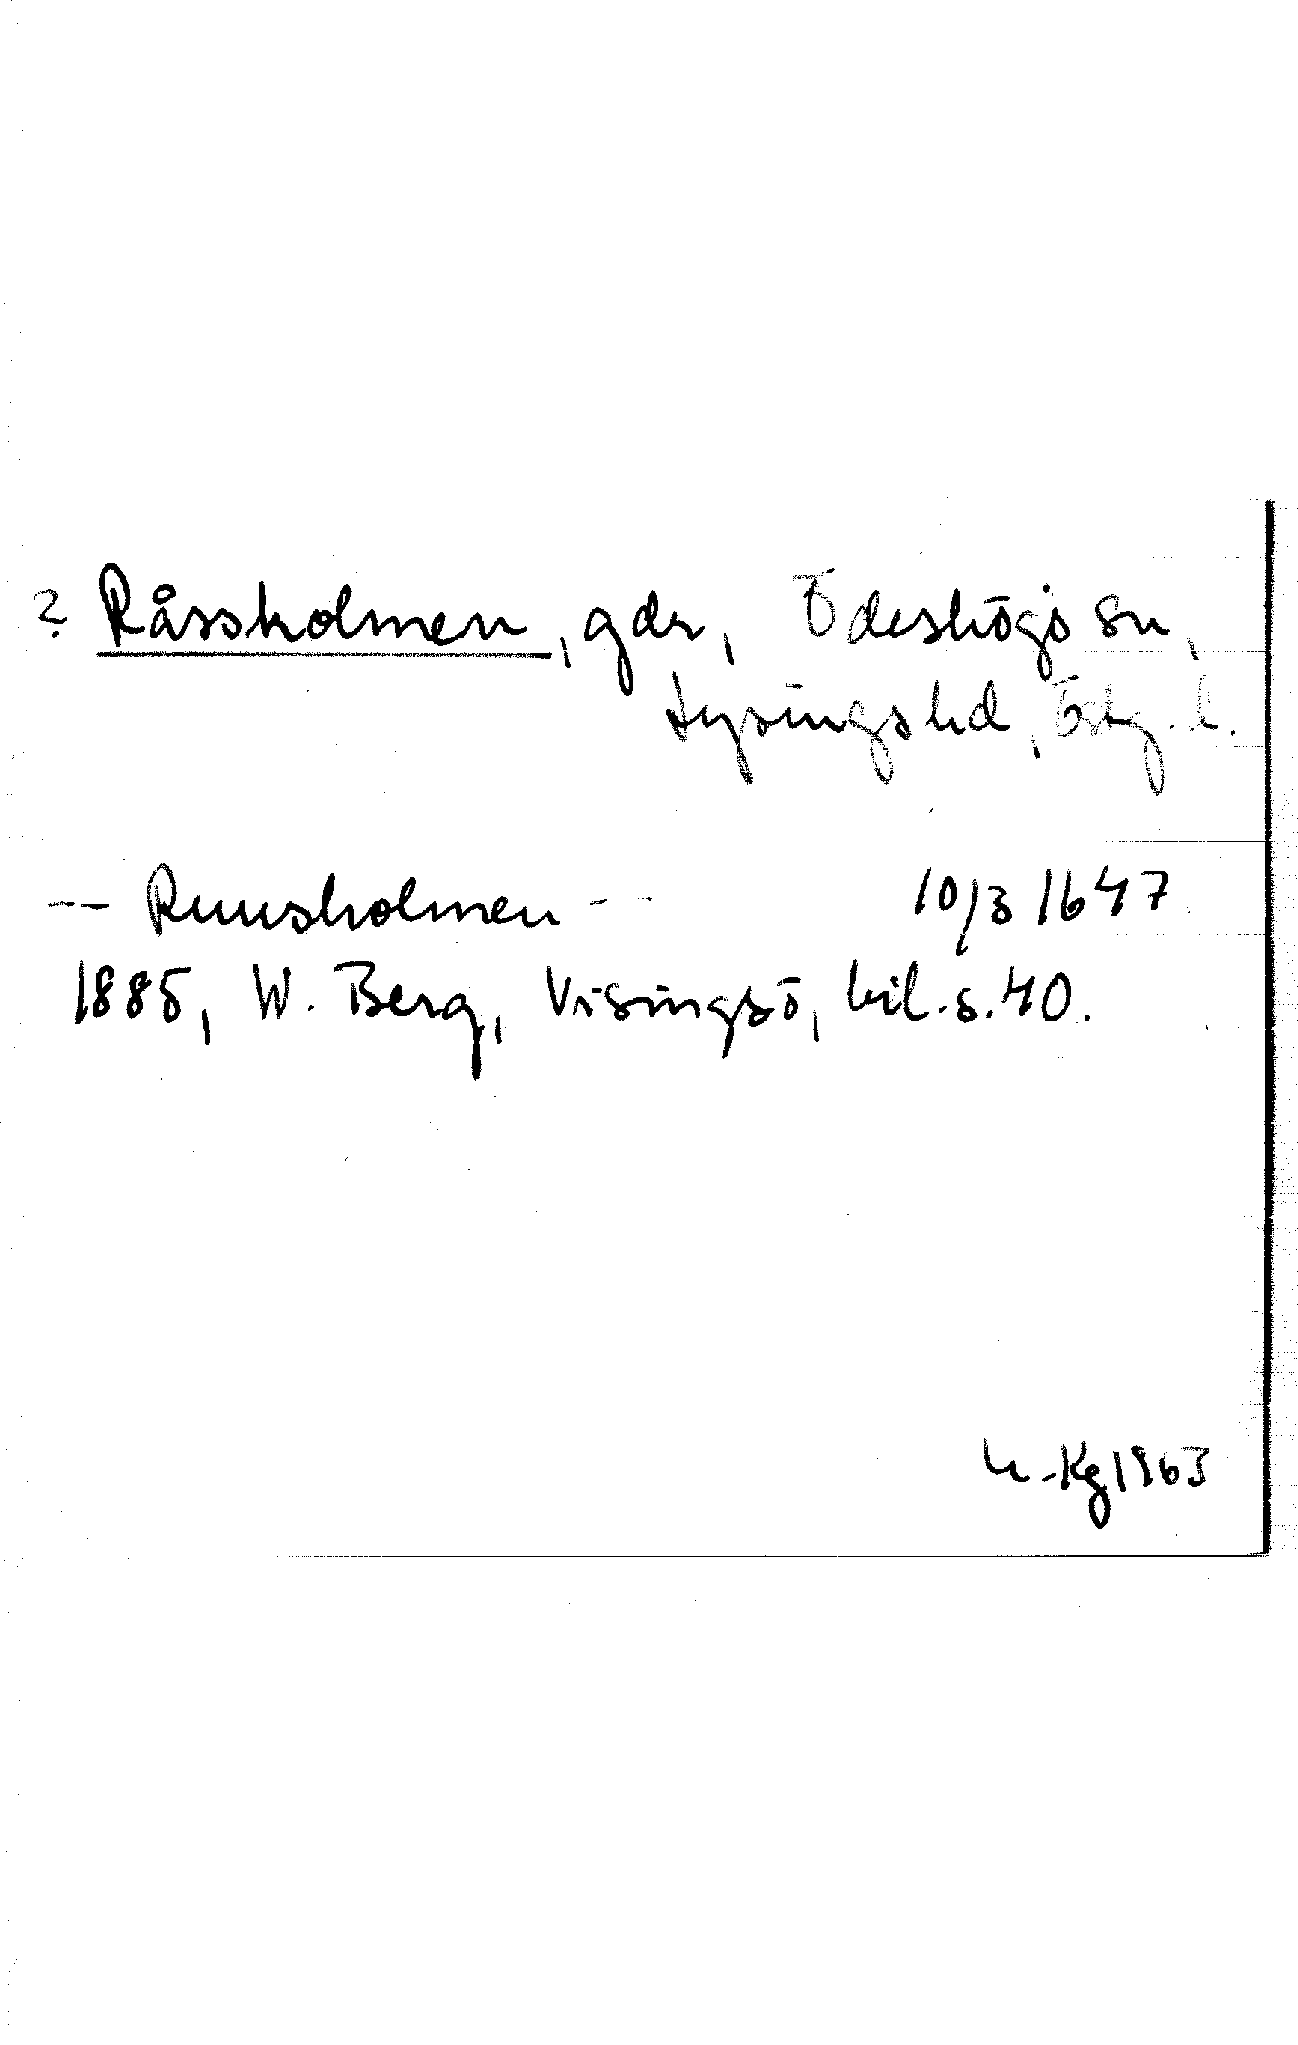 ? Råssholmen, gdr, Ödeshögs sn,
Lysings hd, Östg. l.
-- Ruusholmen -- 10/3 1647
1885, W. Berg, Visingsö, bil. s. 40.
Kg 1963